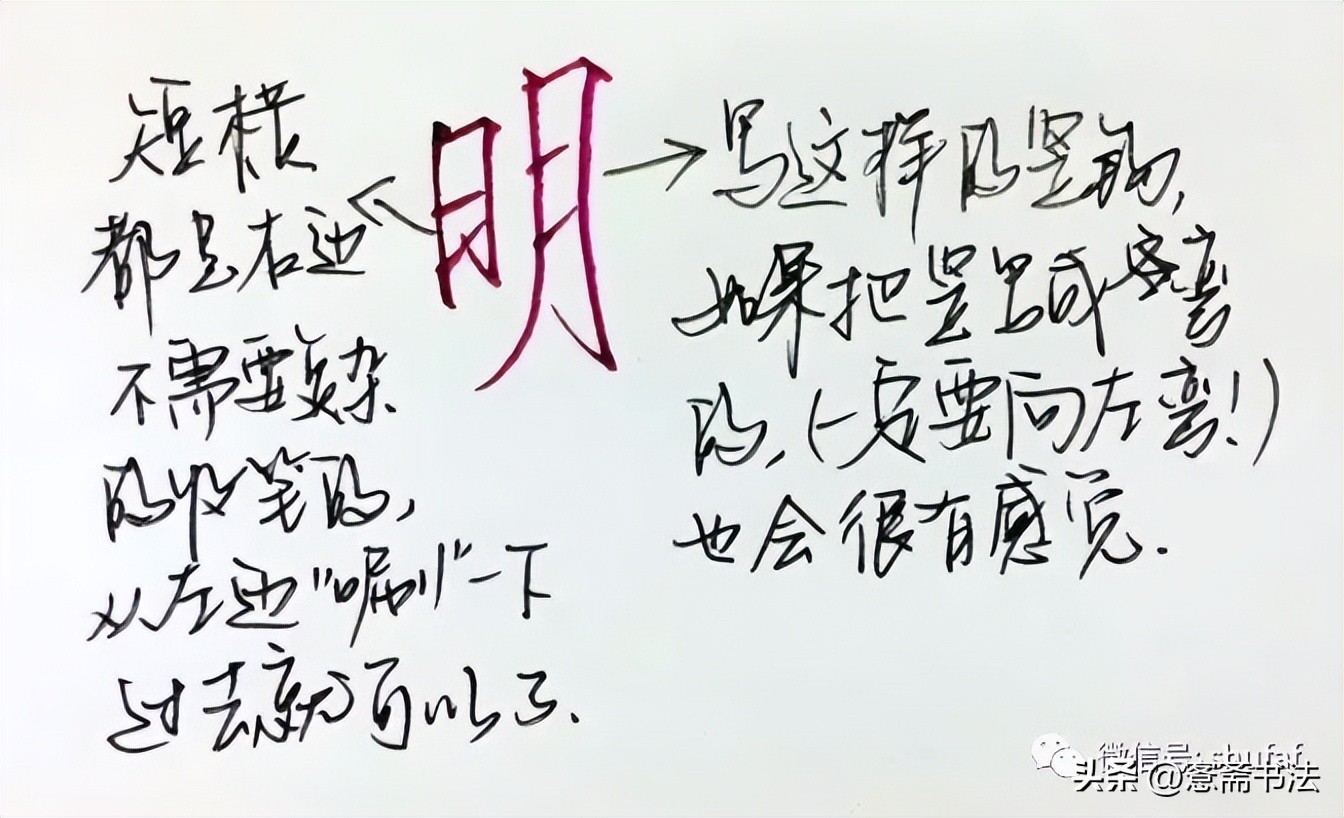 明
短横
都是右边
不需要复杂
的收笔的,
从左边"唰"一下
过去就可以了.
写这样的竖钩,
如果把竖写成弯
的,(一定要向左弯!)
也会很有感觉.
微信号: shufaf
头条 @愙斋书法